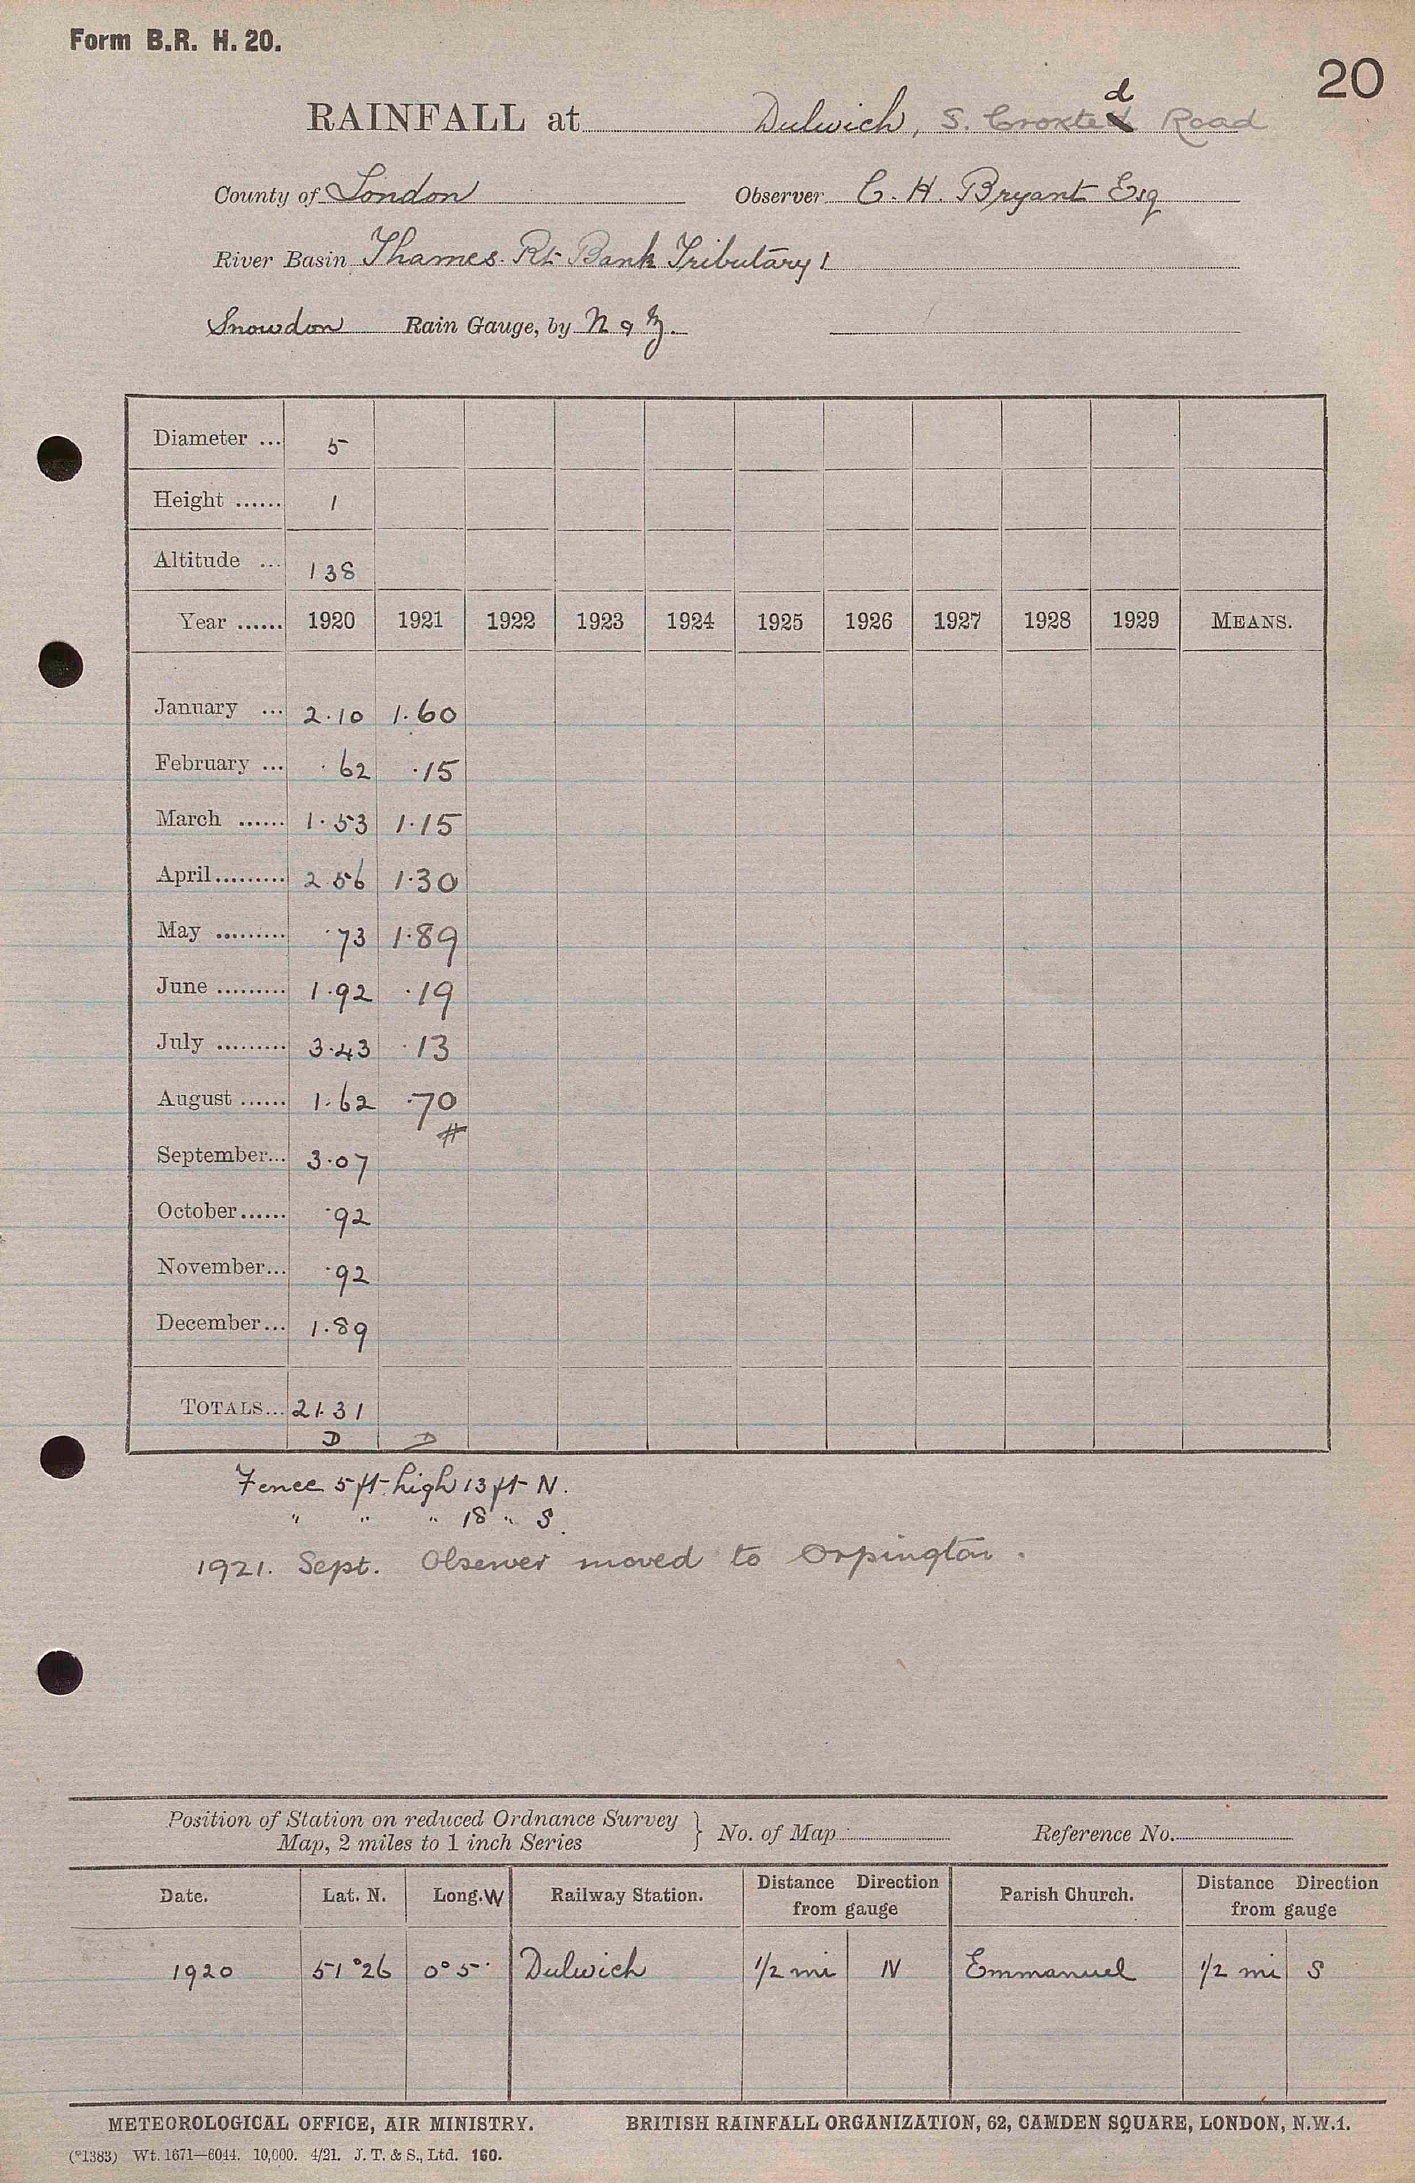 Form B.R. H. 20.
20
RAINFALL at Dulwich, S. Croxted Road
County of London Observer C. H. Bryant Esq
River Basin Thames. Rt Bank Tributary 1
Snowdon Rain Gauge, by N & Z.
Diameter ... 5
Height ...... 1
Altitude ... 138
Year ...... 1920 1921 1922 1923 1924 1925 1926 1927 1928 1929 MEANS.
January ... 2.10 1.60
February ... .62 .15
March ...... 1.53 1.15
April ......... 2.56 1.30
May ......... .73 1.89
June ......... 1.92 .19
July ......... 3.43 .13
August ...... 1.62 .70
#
September... 3.07
October ...... .92
November... .92
December... 1.89
TOTALS... 21.31
D D
Fence 5 ft. high 13 ft N.
" " " 18 " S.
1921. Sept. Observer moved to Orpington.
Position of Station on reduced Ordnance Survey
Map, 2 miles to 1 inch Series } No. of Map Reference No.
Date. Lat. N. Long. W Railway Station. Distance Direction from gauge Parish Church. Distance Direction from gauge
1920 51°26 0°5' Dulwich 1/2 mi N Emmanuel 1/2 mi S
METEOROLOGICAL OFFICE, AIR MINISTRY. BRITISH RAINFALL ORGANIZATION, 62, CAMDEN SQUARE, LONDON, N.W.1.
(*1383) Wt. 1671—6044. 10,000. 4/21. J. T. & S., Ltd. 160.